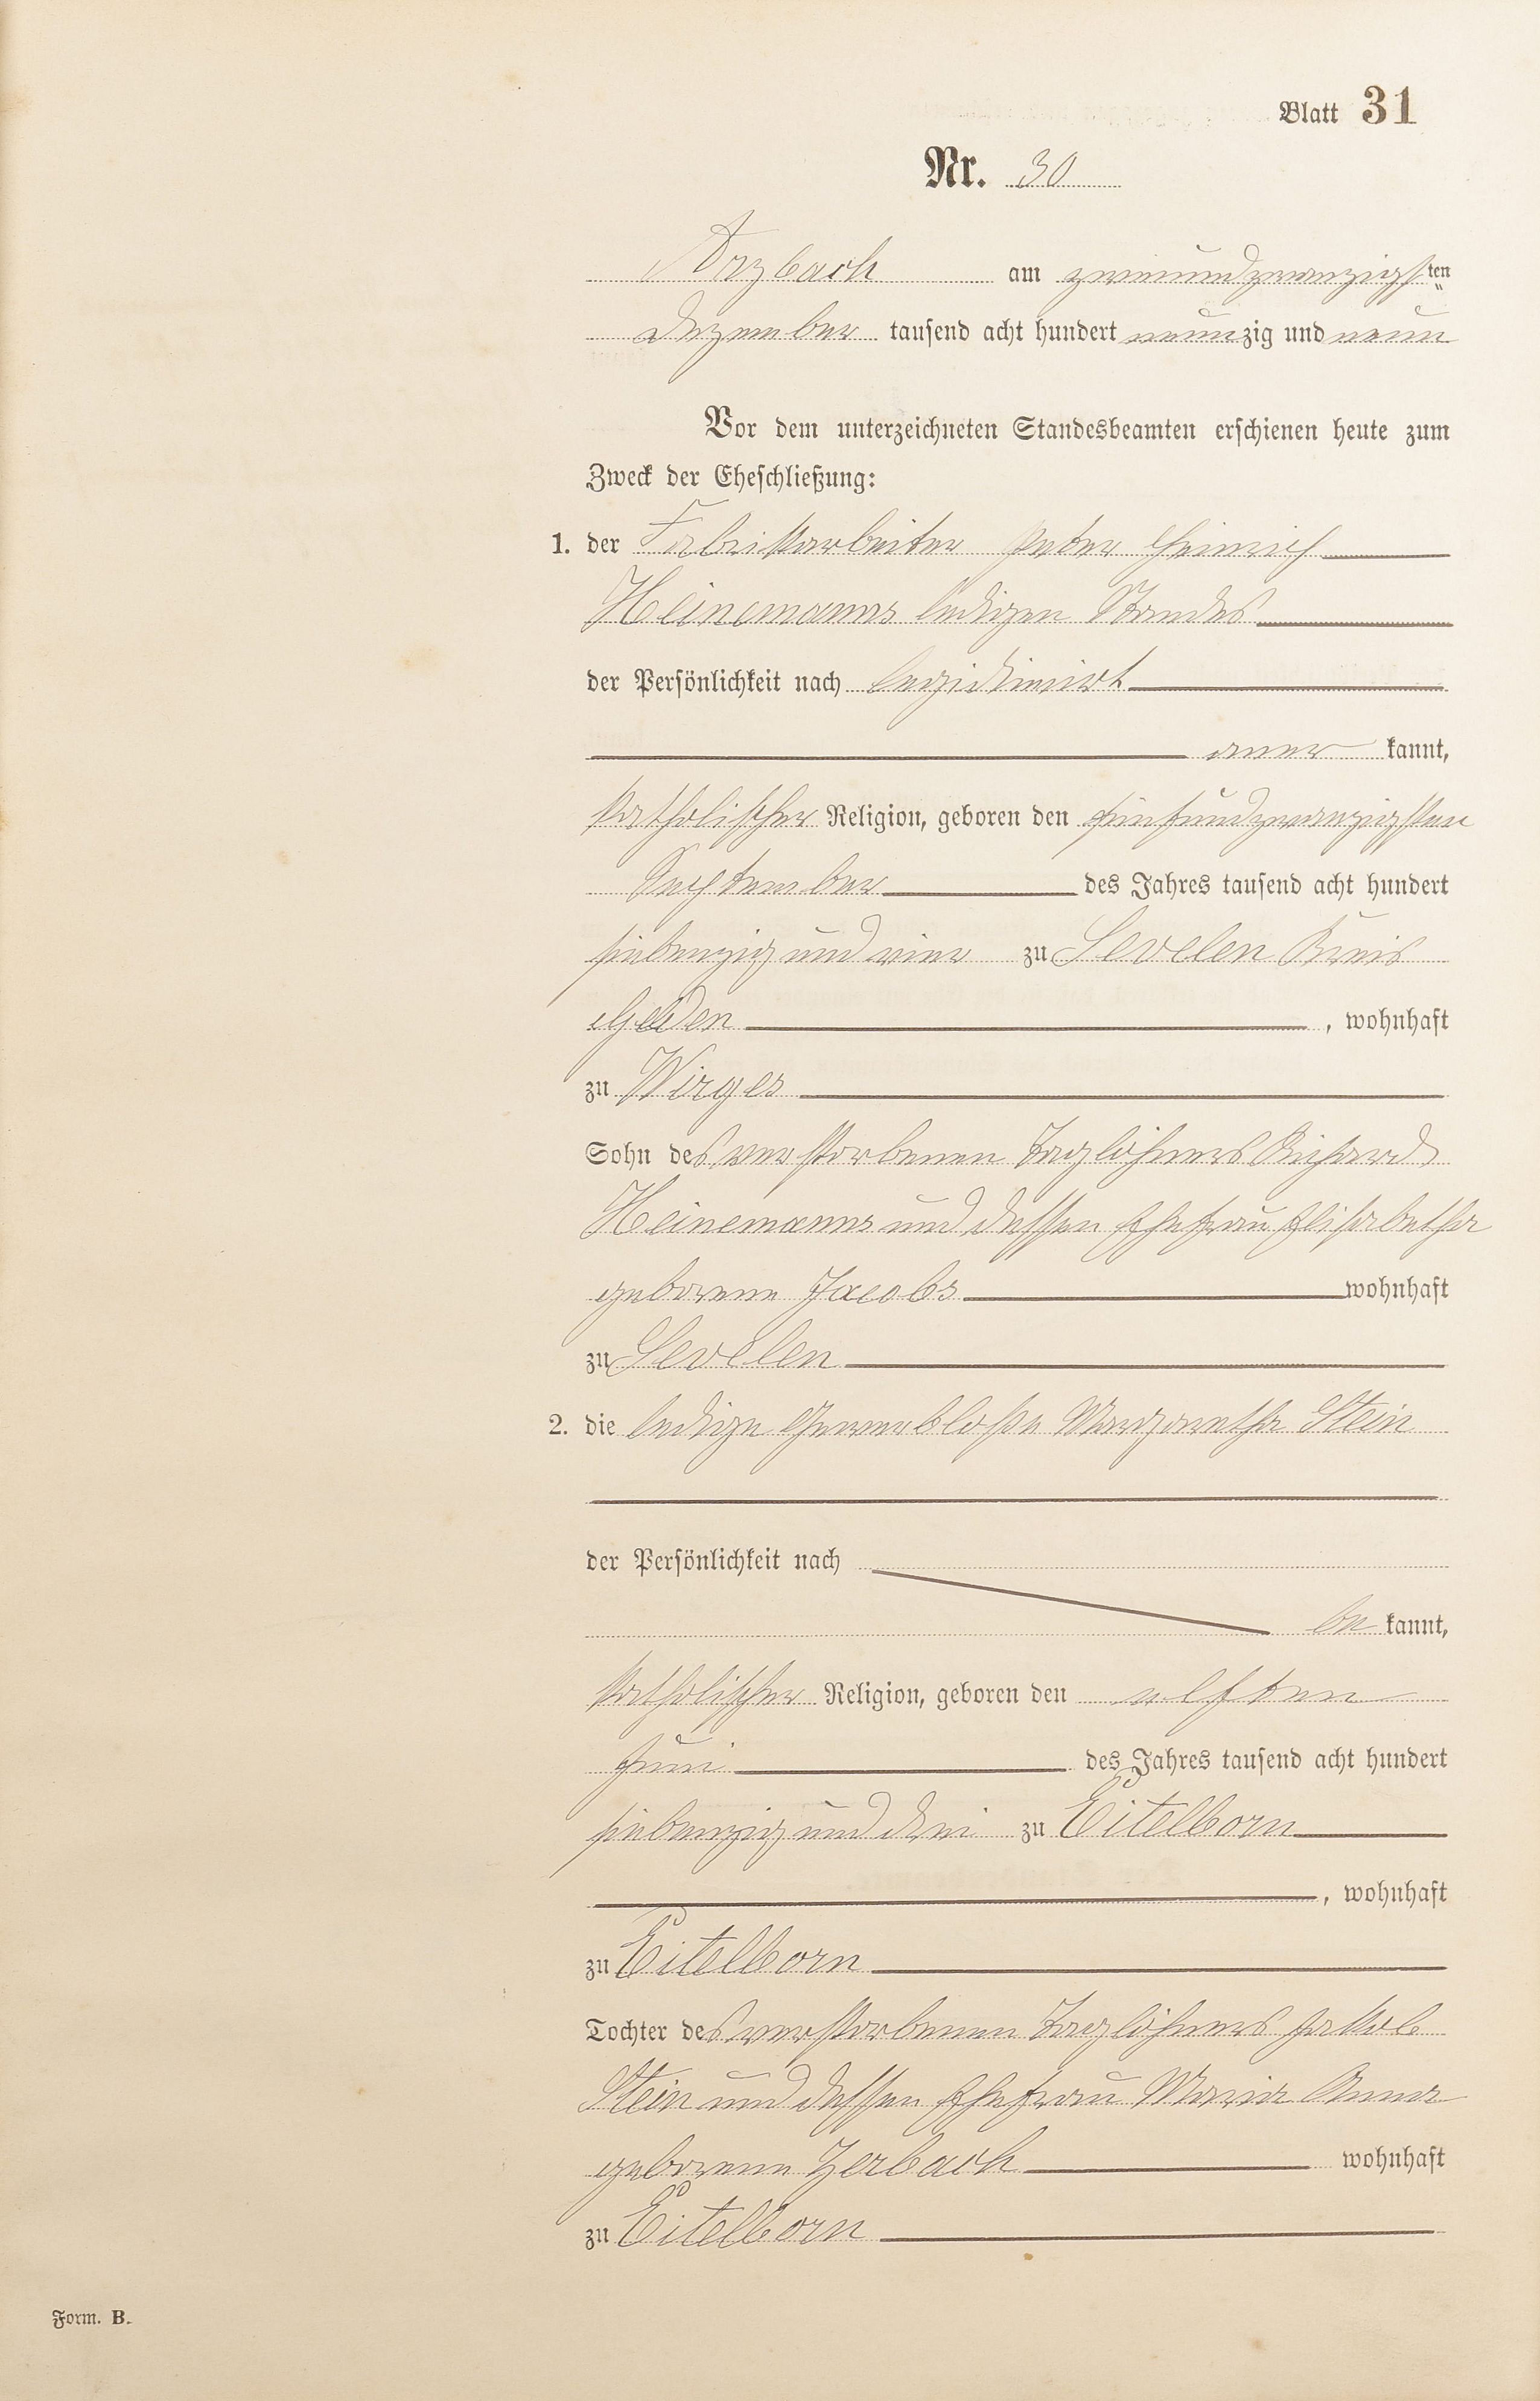 Blatt 31
Nr. 30
Arzbach am zweiundzwanzigsten
Dezember tausend acht hundert neunzig und neun
Vor dem unterzeichneten Standesbeamten erschienen heute zum
Zweck der Eheschließung:
1. der Fabrikarbeiter Peter Heinrich
Heinemanns ledigen Standes
der Persönlichkeit nach legidimirt
aner kannt,
katholischer Religion, geboren den fünfundzwanzigsten
September des Jahres tausend acht hundert
siebenzig und vier zu Sevelen Kreis
Geldern, wohnhaft
zu Wirges
Sohn des verstorbenen Taglöhners Richard
Heinemanns und dessen Ehefrau Elisabetha
geborene Jacobs wohnhaft
zu Sevelen
2. die ledige Gewerbloße Margaretha Stein
der Persönlichkeit nach
be kannt,
katholischer Religion, geboren den elften
Juni des Jahres tausend acht hundert
siebenzig und drei zu Eitelborn
, wohnhaft
zu Eitelborn
Tochter des verstorbenen Taglöhners Jakob
Stein und dessen Ehefrau Maria Anna
geborene Zerbach wohnhaft
zu Eitelborn
Form. B.